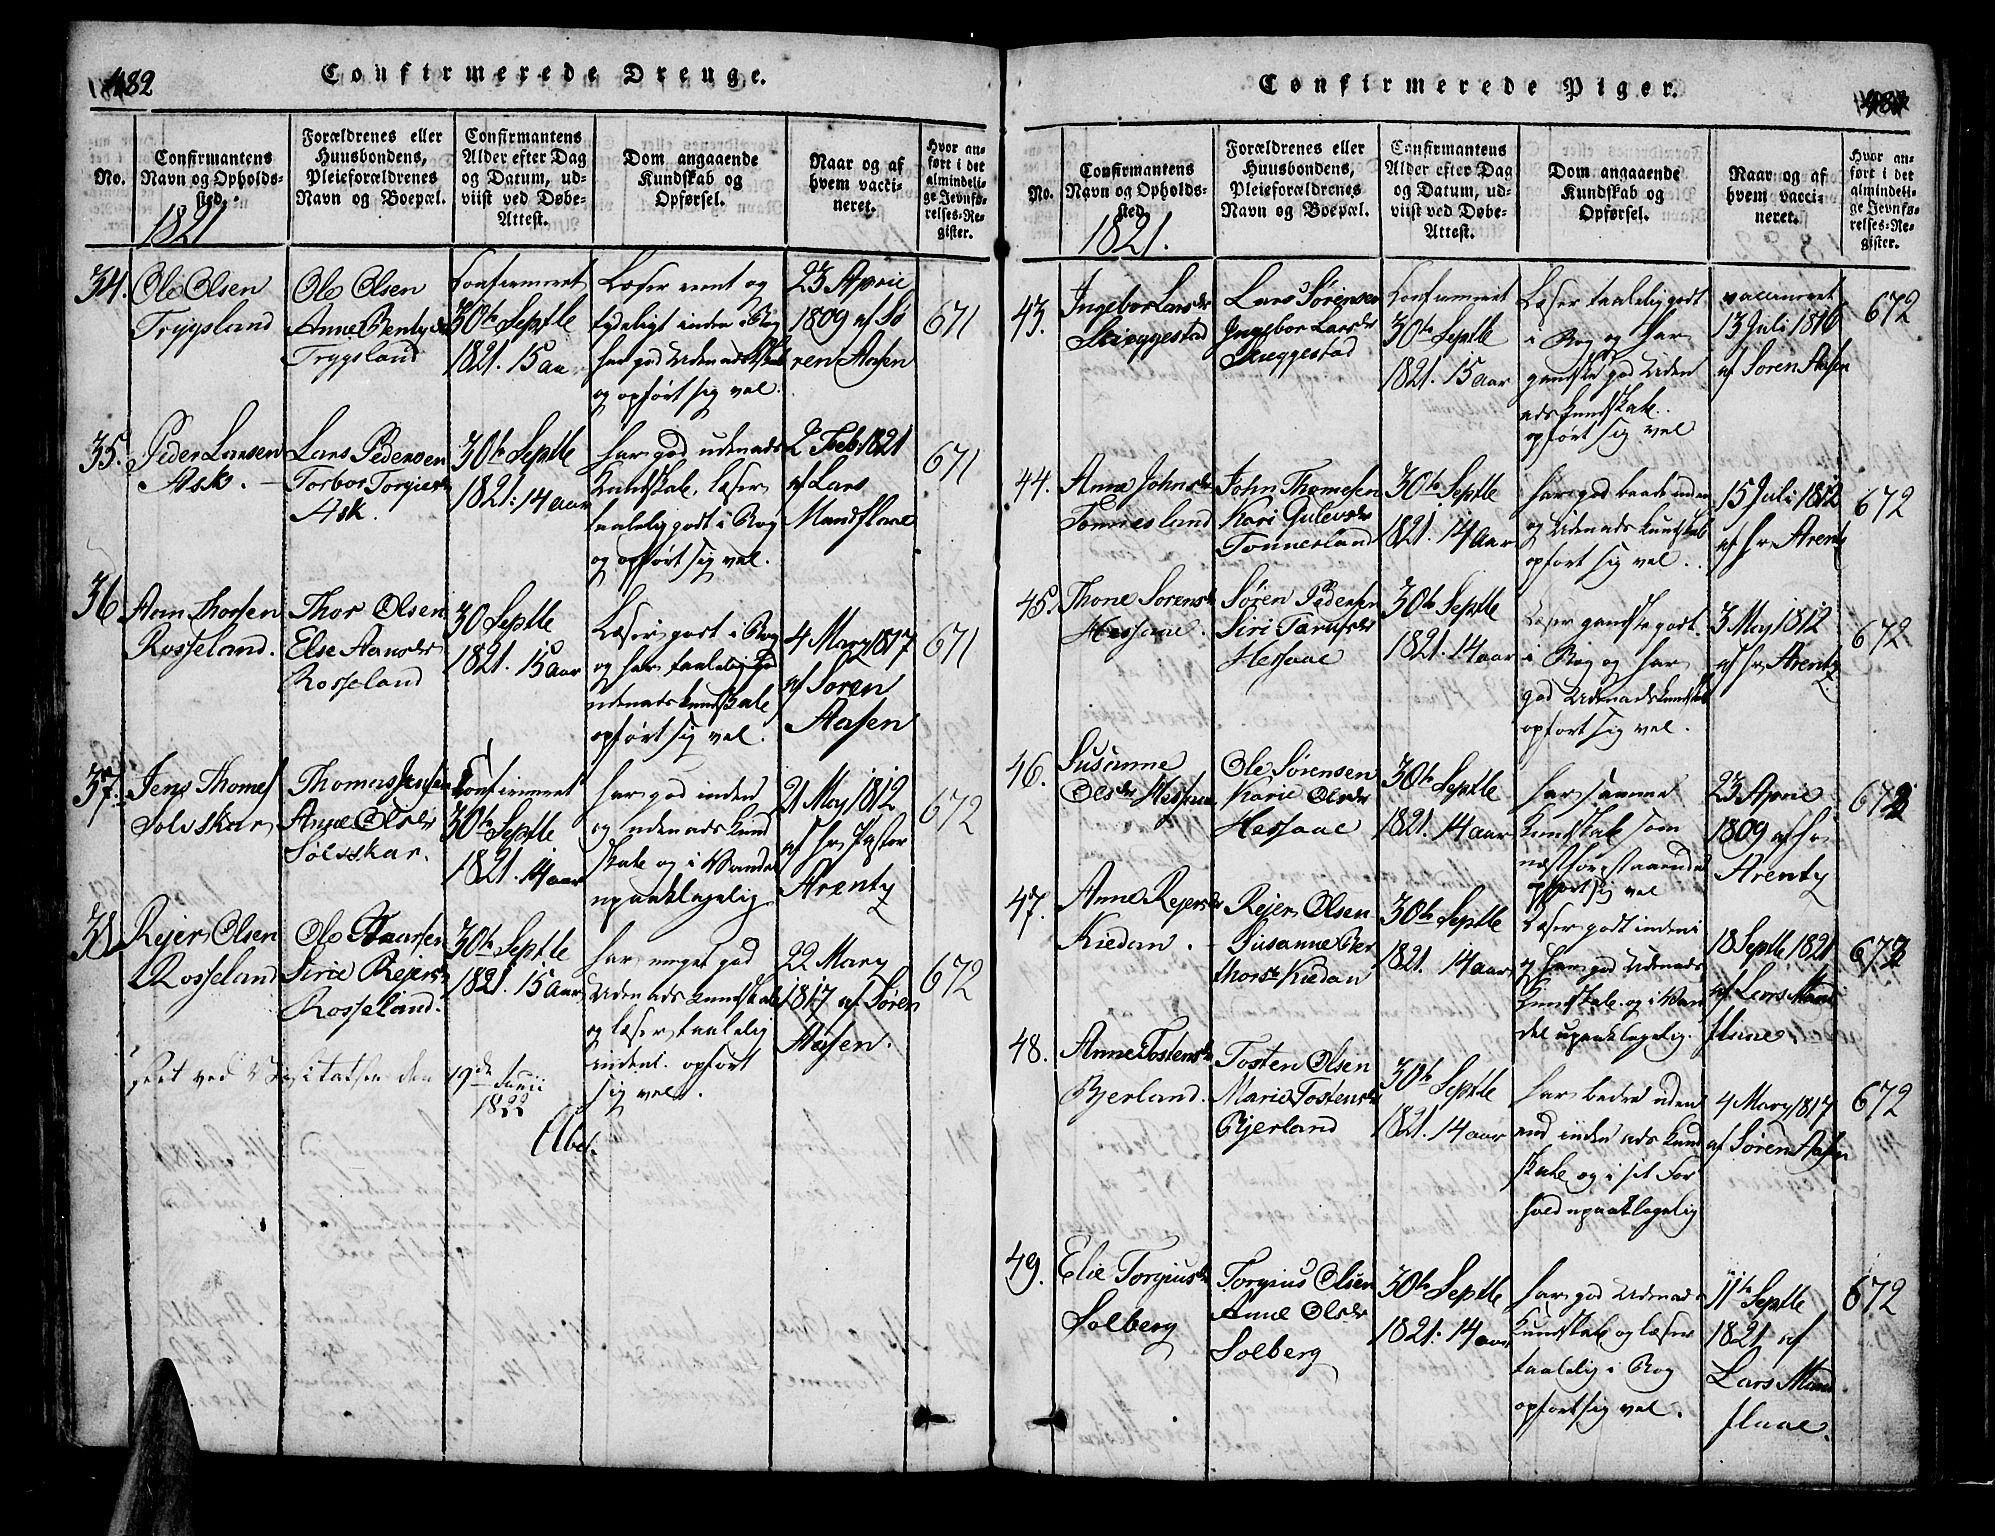 482
Confirmerede Drenge.
No.
Confirmantens
Navn og Opholds-
sted.
1821
Forældrenes eller
Huusbondens,
Pleieforældrenes
Navn og Boepæl.
Confirmantens
Alder efter Dag
og Datum, ud-
viist ved Døbe-
Attest.
Dom angaaende
Kundskab og
Opførsel.
Naar og af
hvem vacci-
neret.
Hvor an-
ført i det
almindeli-
ge Jevnfø-
relses-Re-
gister.
34.
Ole Olsen
Trygsland
Ole Olsen
Anne
Trygsland
Confirmeret
30te Septbe
1821. 15 aar
Læser rent og
tydeligt inden Bog
har god Udenads
og opført sig vel.
23 April
1809 af Sø
ren Aasen
671
35.
Peder Larsen
Ask.
Lars Pedersen
Torbor
Ask.
30te Septbe
1821. 14 aar
har god udenads
Kundskab, læser
taalelig godt i Bog
og opført sig vel.
2 Feb. 1821
af Lars
Mandflaae
671
36
Aam Thorsen
Rosseland.
Thor Olsen
Else
Rosseland
30 Septbe
1821. 15 aar
Læser godt i Bog
og har taalelig god
udenads kundskab
opført sig vel.
4 Mary 1817
af Søren
Aasen
671
37.
Jens Thomes
Solvskar
Thomas Jensen
Anne Olsdr
Sølvskar.
Confirmeret
30te Septbe
1821. 14 aar
har god inden
og udenads kund
skab og i Vandel
upaaklagelig
21 May 1812
af hr. Pastor
Arentz
672
38
Rejer Olsen
Rosseland
Ole
Sirie Rejers
Rosseland.
30te Septbe
1821. 15 aar
har meget god
Udenads kundskab
og læser taalelig
indent. opført
sig vel.
22 Mary
1817 af Søren
Aasen.
672
seet ved Visitatsen den 19de Junii
1822
Confirmerede Piger.
No.
Confirmantens
Navn og Opholds-
sted.
1821.
Forældrenes eller
Huusbondens,
Pleieforældrenes
Navn og Boepæl.
Confirmantens
Alder efter Dag
og Datum, ud-
viist ved Døbe-
Attest.
Dom angaaende
Kundskab og
Opførsel.
Naar og af
hvem vacci-
neret.
Hvor an-
ført i det
almindeli-
ge Jevnfø-
relses-Re-
gister.
43.
Ingebor Larsdr
Lars Sørensen
Ingebor Larsdr
Confirmeret
30te Septbe
1821. 15 aar
Læser taalelig godt
i Bog og har
gandske god Uden
adskundskab.
opført sig vel
vaccineret
13 Juli 1816
af Søren Aasen
672
44.
Anne Johnsdr
Tonnesland
John Thomesen
Kari Gulevsdr
Tonnesland
30te Septbe
1821. 14 aar
har god baade inden
og Udenads kundskab
opført sig vel.
15 Juli 1812
af hr. Arentz
672
45.
Thone Sørensdr
Hessaae.
Søren Pedersen
Siri
Hessaae
30te Septbe
1821. 14 aar
Læser gandske godt
i Bog og har
god Udenadskundskab
opført sig vel.
3 May 1812
af hr. Arentz
672
46.
Susanne
Olsdr
Ole Sørensen
Karie Olsdr
Hessaae
30te Septbe
1821. 14 aar
har samme
Kundskab som
næstforestaaende
opført sig vel
23 April
1809 af hr.
Arentz
672
47.
Anne Rejersdr
Kiedan.
Rejer Olsen
Susanne Ber
thorsdr Kiedan
30te Septbe
1821. 14 aar
Læser godt inden
og har god Udenads
Kundskab og i Van
del upaaklagelig.
18 Septbe 1821
af Lars Mand
flaae.
672
48.
Anne Tostensdr
Bjerland.
Tosten Olsen
Marie Tostensdr
Bjerland
30te Septbe
1821. 14 aar
har bedre uden
end inden ads kund
skab og i sit For
hold upaaklagelig
4 Mary 1817
af Søren Aasen
672
49.
Elie Torgiusdr
Solberg
Torgius Olsen
Anne Olsdr
Solberg
30te Septbe
1821. 14 aar
har god Udenads
kundskab og læser
taalelig i Bog
opført sig vel.
11te Septbe
1821 af
Lars Mand
flaae.
672